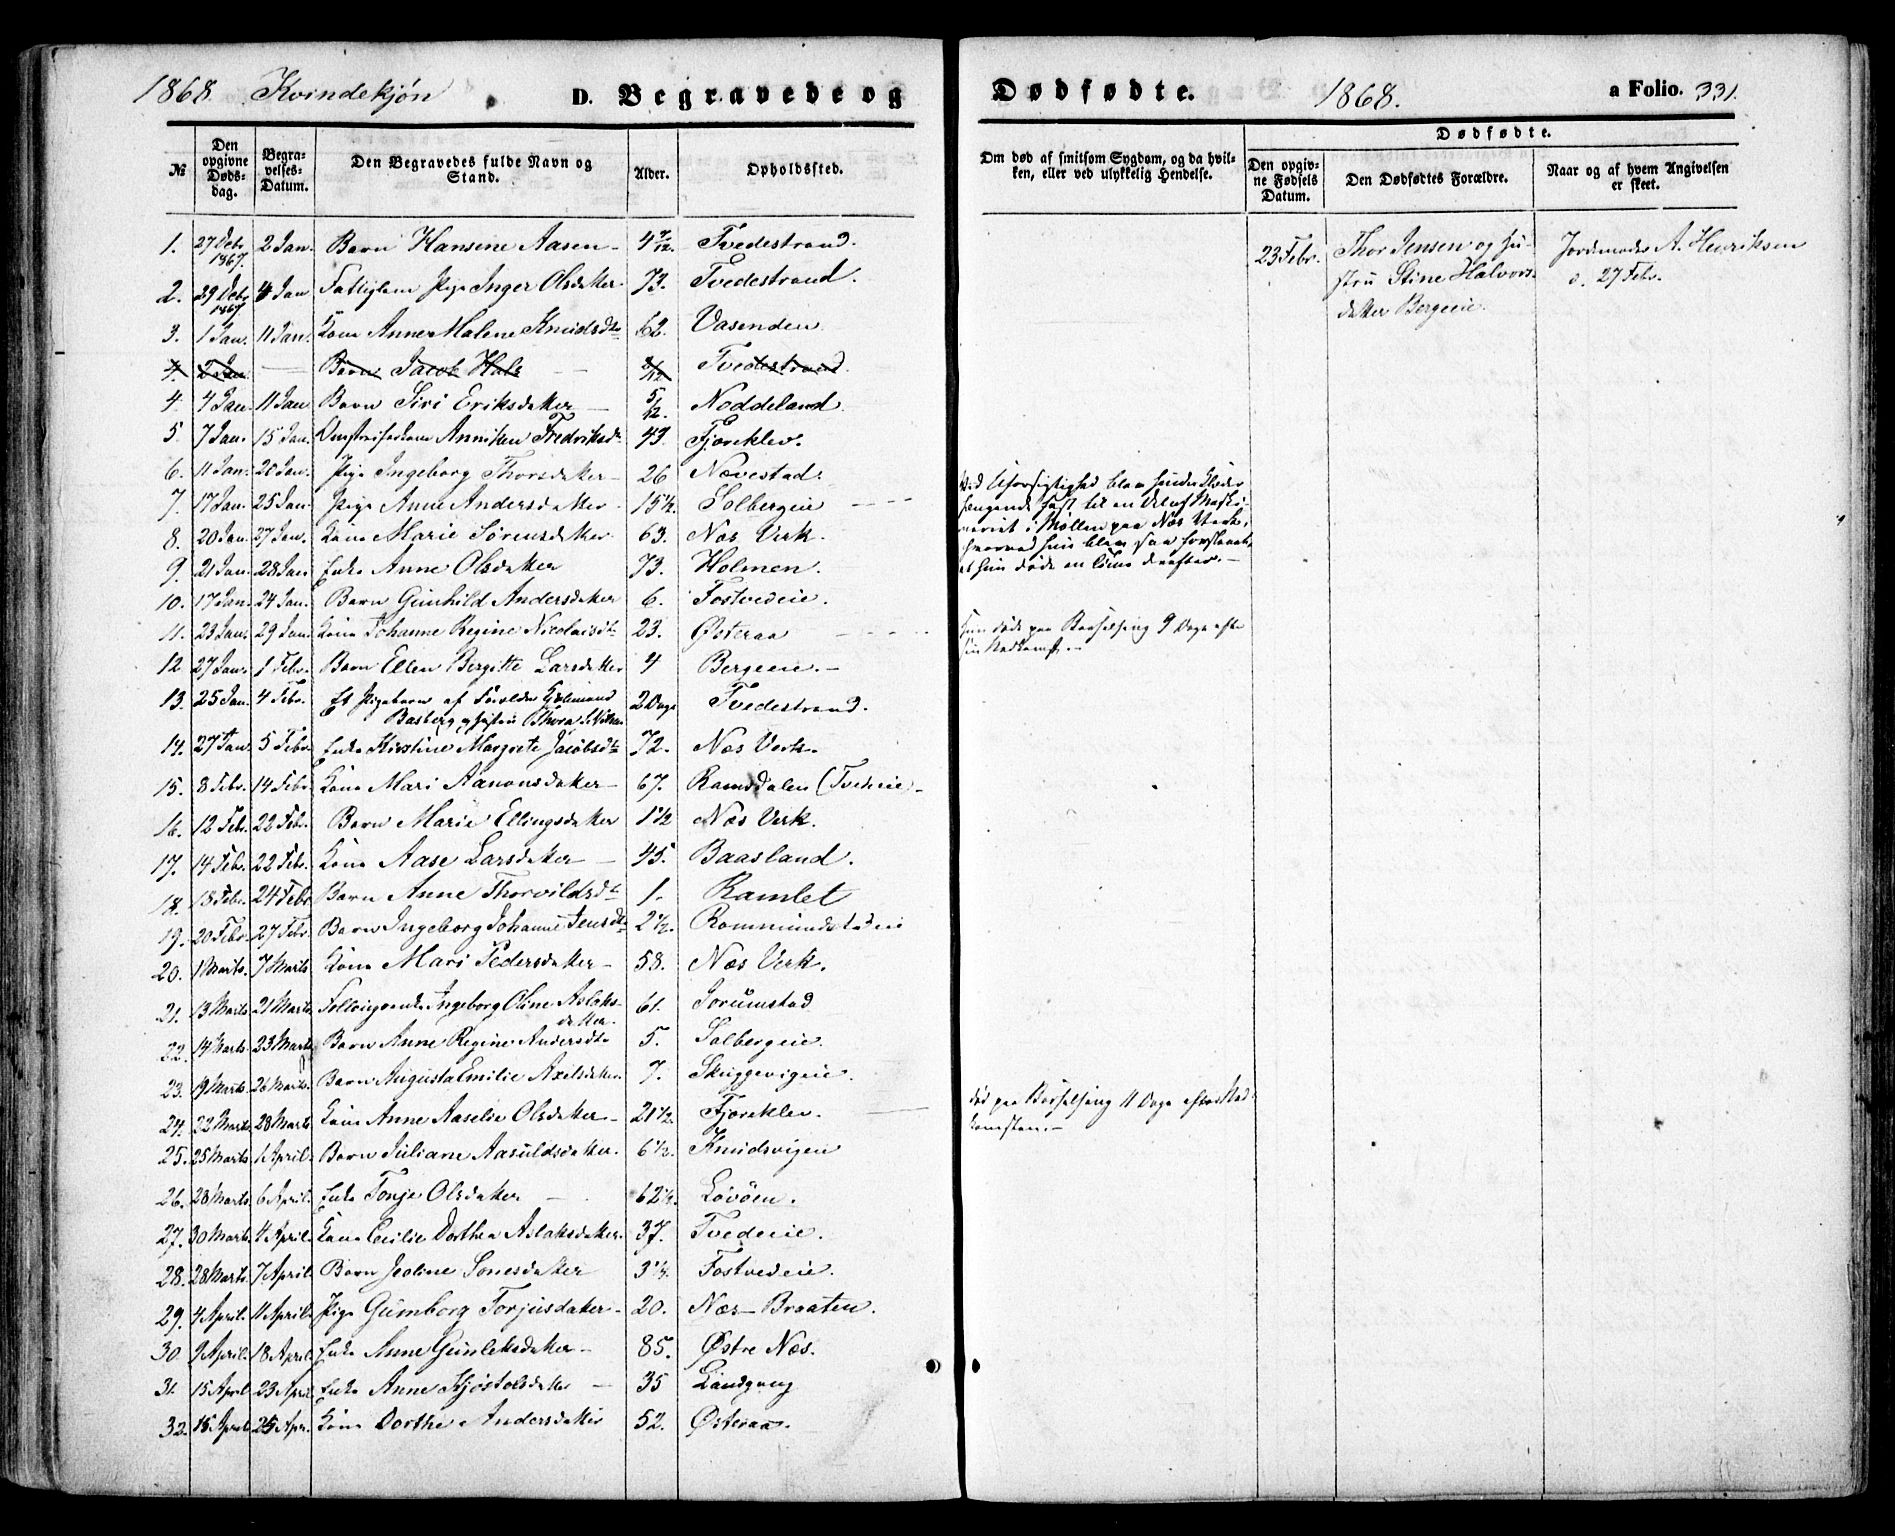 1868. Kvindekjøn D. Begravede og
№ Den opgivne Døds-dag. Begra-velses-Datum. Den Begravedes fulde Navn og Stand. Alder. Opholdssted.
1. 27 Debr 1867. 2 Jan. Barn Hansine Aasen 4 7/12. Tvedestrand.
2. 29 Debr 1867 4 Jan Fattiglem Pige Inger Olsdatter 73. Tvedestrand.
3. 1 Jan. 11 Jan. Kone Anne Malene Knudsdtr 62. Vasenden
4. 2 Jan. — Barn Jacob Hals 3/12 Tvedestrand.
4. 4 Jan. 11 Jan Barn Siri Eriksdatter 5/12. Noddeland
5. 7 Jan. 15 Jan. Anniken Fredriksdtr 43. Fjæreklev.
6. 11 Jan. 20 Jan. Pige Ingeborg Thorsdatter 26 Nævestad.
7. 17 Jan. 25 Jan. Pige Anne Andersdatter 15 1/2. Solbergeie
8. 20 Jan. 27 Jan. Kone Marie Sørensdatter 63. Næs Verk.
9. 21 Jan. 28 Jan Enke Anne Olsdatter 73. Holmen.
10. 17 Jan. 24 Jan. Barn Gunhild Andersdatter 6. Fostvedeie.
11. 23 Jan. 29 Jan. Kone Johanne Regine Nicolaisdtr 23. Østeraa
12 27 Jan. 1 Febr. Barn Ellen Bergitte Larsdatter 4 Bergeeie.
13. 25 Jan. 4 Febr. Et Pigebarn af Forældre
Basberg og Hustru Thora 2 Dage Tvedestrand.
14. 27 Jan. 5 Febr. Enke Kirstine Margrete Jacobsdtr 72. Næs Verk.
15. 8 Febr. 14 Febr Kone Mari Aanonsdatter 67. Ramsdalen (Tvedeeie.
16. 12 Febr. 22 Febr. Barn Marie Ellingsdatter 1 1/2 Næs Verk.
17. 14 Febr. 22 Febr. Kone Aase Larsdatter 45. Baasland.
18. 18 Febr. 24 Febr Barn Anne Thorvildsdtr 1. Ramlet
19. 20 Febr. 27 Febr. Barn Ingeborg Johanne Jensdtr 2 1/2. Rommundstadeie
20. 1 Marts. 7 Marts Kone Mari Pedersdatter 58. Næs Verk.
21. 13 Marts 21 Marts Ingeborg Oline Aslaks-
datter. 61. Sorumstad
22. 14 Marts. 23 Marts Barn Anne Regine Andersdtr 5. Solbergeie.
23. 19 Marts. 26 Marts. Barn Augusta Emilie Axelsdatter 7. Skuggevigeie.
24. 22 Marts 28 Marts Kone Anne Aaselie Olsdatter 21 1/2. Fjæreklev.
25. 25 Marts 1 April. Barn Juliane Aasuldsdatter. 6 1/2. Knudsvigen
26. 28 Marts 6 April. Enke Tonje Olsdatter 62 1/2. Løvøen.
27. 30 Marts. 4 April. Kone Cecilie Dorthea Aslaksdatter. 37. Tvedeeie.
28. 28 Marts. 7 April. Barn Jeoline Sonesdatter 3 1/4. Fostvedeie.
29. 4 April. 11 April. Pige Gumborg Torjusdatter 20. Næs Braaten.
30. 9 April. 18 April. Enke Anne Gunleksdatter 85. Østre Næs.
31. 15 April 23 April Enke Anne Kjøstolsdatter 35 Landgang
32. 18 April. 25 Apr. Kone Dorthe Andersdatter 52. Østeraa.
Dødfødte. 1868. a Folio. 331.
Om død af smitsom Sygdom, og da hvil-ken, eller ved ulykkelig Hendelse. Dødfødte.
Den opgiv-ne Fødsels Datum. Den Dødfødtes Forældre. Naar og af hvem Angivelsen er skeet.
23 Febr. Thor Jensen og Hu- Jordmoder A. Henriksen
stru Stine Halvors- d. 27 Febr.
datter Bergeeie.
Ved Uforsigtighed blev hendes Klæder
hængende fast til en Del af Maski-
neriet i Møllen paa Næs Verk,
hvorved hun blev saa forslaaet,
at hun døde en Time derefter.
Hun døde paa Barselseng 9 Dage efter
sin Nedkomst.
død paa Barselseng 11 Dage efter Ned-
komsten.